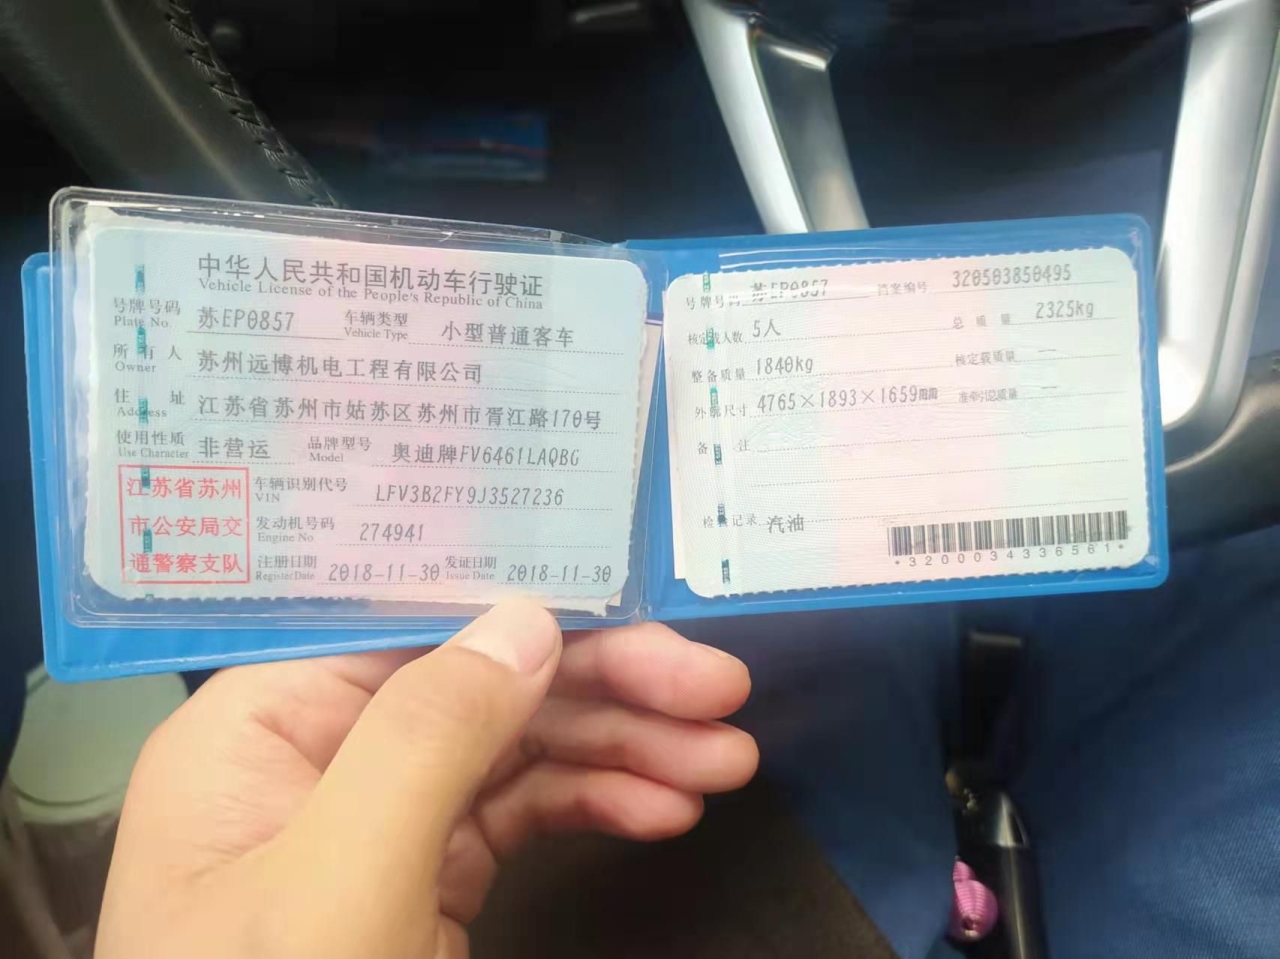 中华人民共和国机动车行驶证
Vehicle License of the People's Republic of China
号牌号码 苏EP0857 车辆类型 小型普通客车
Plate No. Vehicle Type
所有人 苏州远博机电工程有限公司
Owner
住址 江苏省苏州市姑苏区苏州市胥江路170号
Address
使用性质 非营运 品牌型号 奥迪牌FV6461LAQBG
Use Character Model
江苏省苏州
市公安局交
通警察支队
车辆识别代号 LFV3B2FY9J3527236
VIN
发动机号码 274941
Engine No.
注册日期 2018-11-30 发证日期 2018-11-30
Register Date Issue Date
号牌号码 苏EP0857 档案编号 320503850495
核定载人数 5人 总质量 2325kg
整备质量 1840kg 核定载质量 —
外廓尺寸 4765×1893×1659 准牵引总质量 —
备注
检验记录 汽油
*3200034336561*